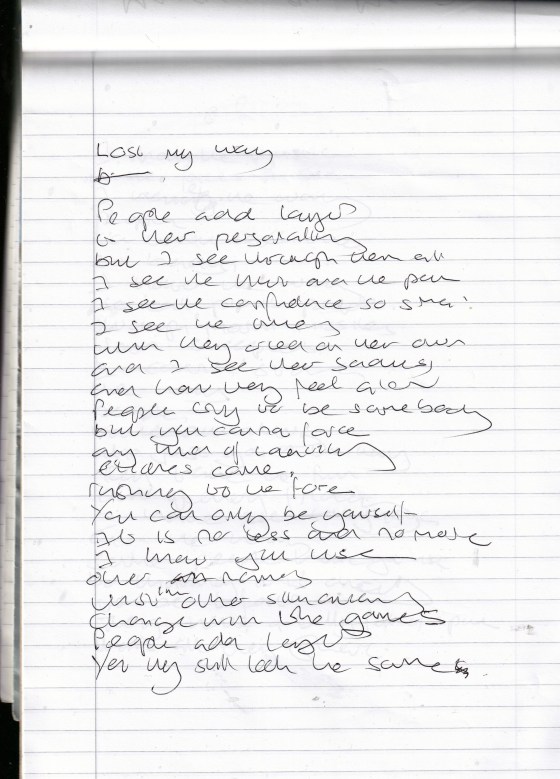 Lost my way
People add layers
to their personality
but I see through them all
I see the hurt and the pain
I see the confidence so small
I see the
when they cried on their own
and I see their sadness
and how they feel alone
People try to be somebody
but you cannot force
any kind of
come,
rushing to the fore
You can only be yourself
It is no less and no more
I know you use
other names
in other
change with the games
People add layers
Yet they still look the same